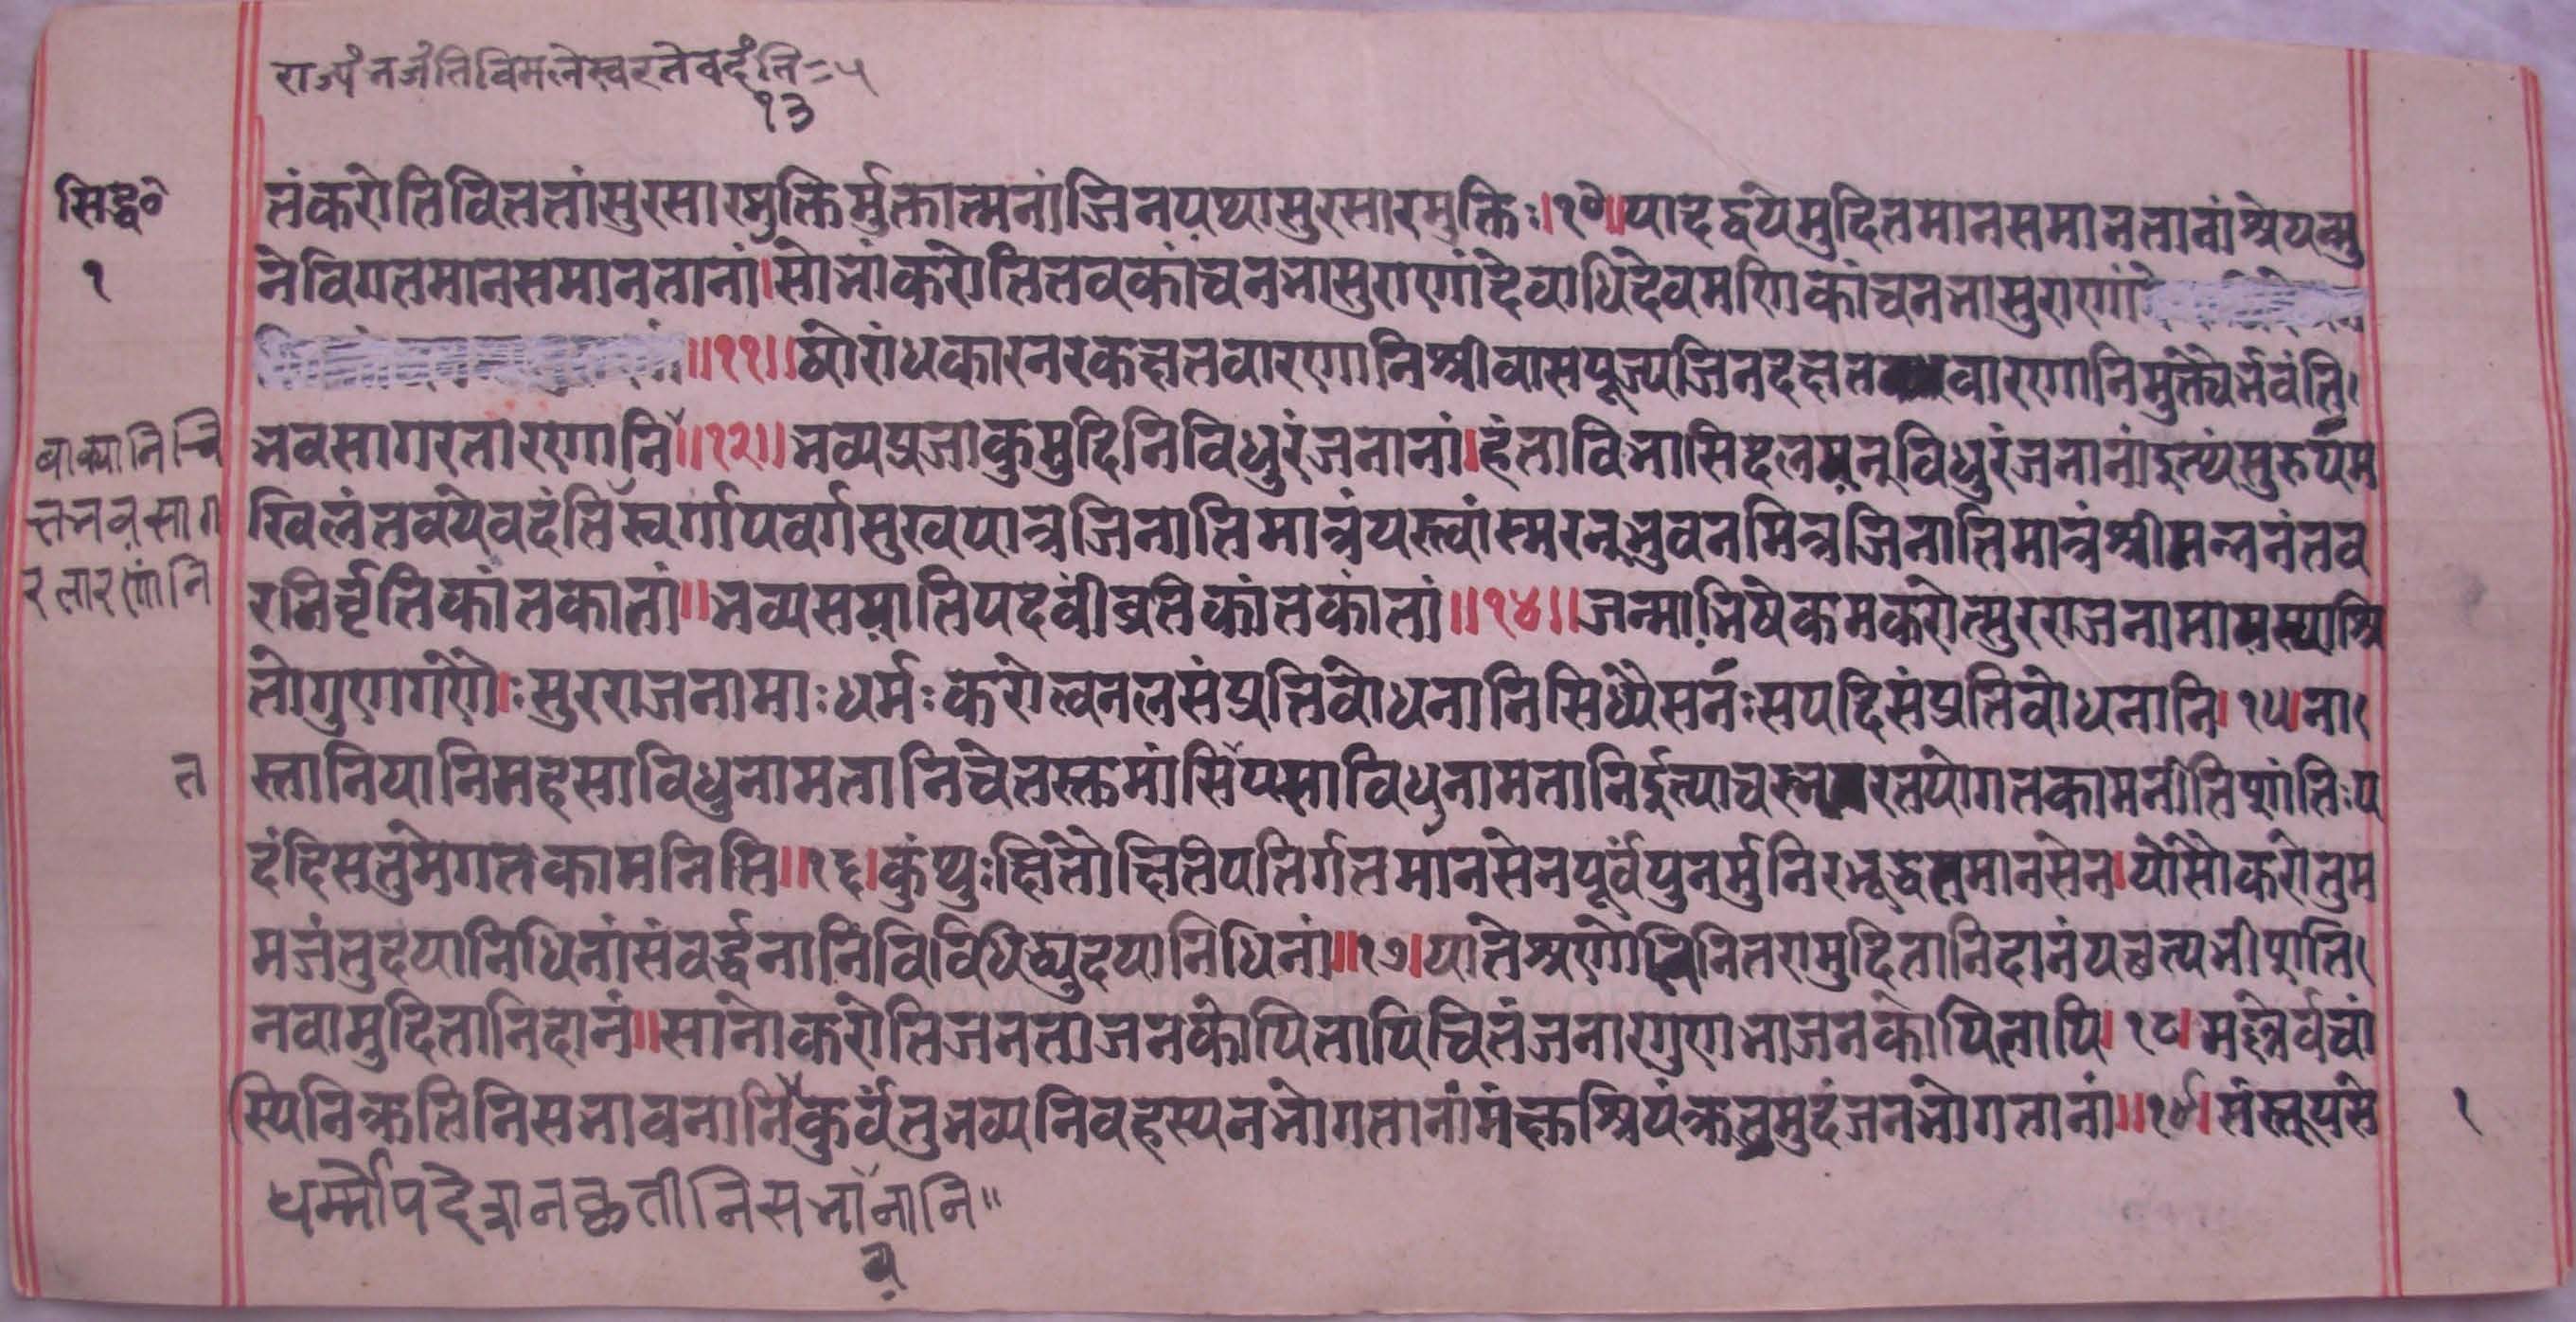 राज्यं नजंति विमलेस्वरतेवदंति = ५
१३
सिद्ध०
१
तंकरोतिविततांसुरसारमुक्तिर्मुक्तात्मनांजिनपथासुरसारमुक्तिः।१०॥पादद्वयेमुदितमानसमानतानांश्रेयत्मु
नेविगतमानसमानतानां।सोभांकरोतितवकांचनभासुराणांदेवाधिदेवमणिकांचनभासुराणां
॥११॥घोरांधकारनरकक्षतवारणानिश्रीवासपूज्यजिनदक्षतवारणानिमुक्त्यैर्भवंति।
भवसागरतारणानि॥१२॥भव्यप्रजाकुमुदिनिविधुरंजनानां।हंताविभासिदलयन्विधुरंजनानांदुत्थंसुरुपम
खिलंतवयेवदंतिस्वर्गापवर्गसुखपात्रजिनातिमात्रंयस्त्वांस्मरन्भुवनमित्रजिनातिमात्रंश्रीमन्ननंतव
रनिर्वृतिकांतकातां॥भव्यसयातिपदवींव्रतिकांतकांतां॥१४॥जन्माभिषेकमकरोत्सुरराजनामायस्याश्रि
तोगुणगणैः।सुरराजनामाः धर्मः करोत्वनलसंप्रतिबोधनानिसिध्यैसनः सपदिसंप्रतिबोधनानि।१५।ना।
स्तानियानिमहसाविधुनामतानिचेतस्तमांसिपसाविधुनामतानिर्दुत्पाचरुनरतपोगतकामनीतिशांतिःप
दंदिसतुमेगतकामनिति॥१६।कुंथुः क्षितौक्षितिपतिर्गतमानसेनपूर्वंपुनर्मुनिरभूद्धतमानसेन।योसौकरोतुम
मजंतुदयानिधिनांसंवर्द्धनानिविविधिद्युदयानिधिनां॥१७।यातेश्रणोनितरामुदितानिदानंयछत्यभीशाति।
नवामुदितानिदानं॥सानोकरोतिजनताजनकोपितापिचितंजनारगुणभाजनकोपितापि।१८।मल्लेर्वचां
स्यिनिक्रतिनिसभावनानिकुर्वंतुभव्यनिवहस्यनभोगतानांमंक्षश्रियंक्रतमुदंजनभोगतानां॥१९।संस्तूयसे
वाक्यानिचि
त्तनवसाग
रतारणांनि
त
१
धर्मोपदेशनकृतीनिसभानानि॥
व